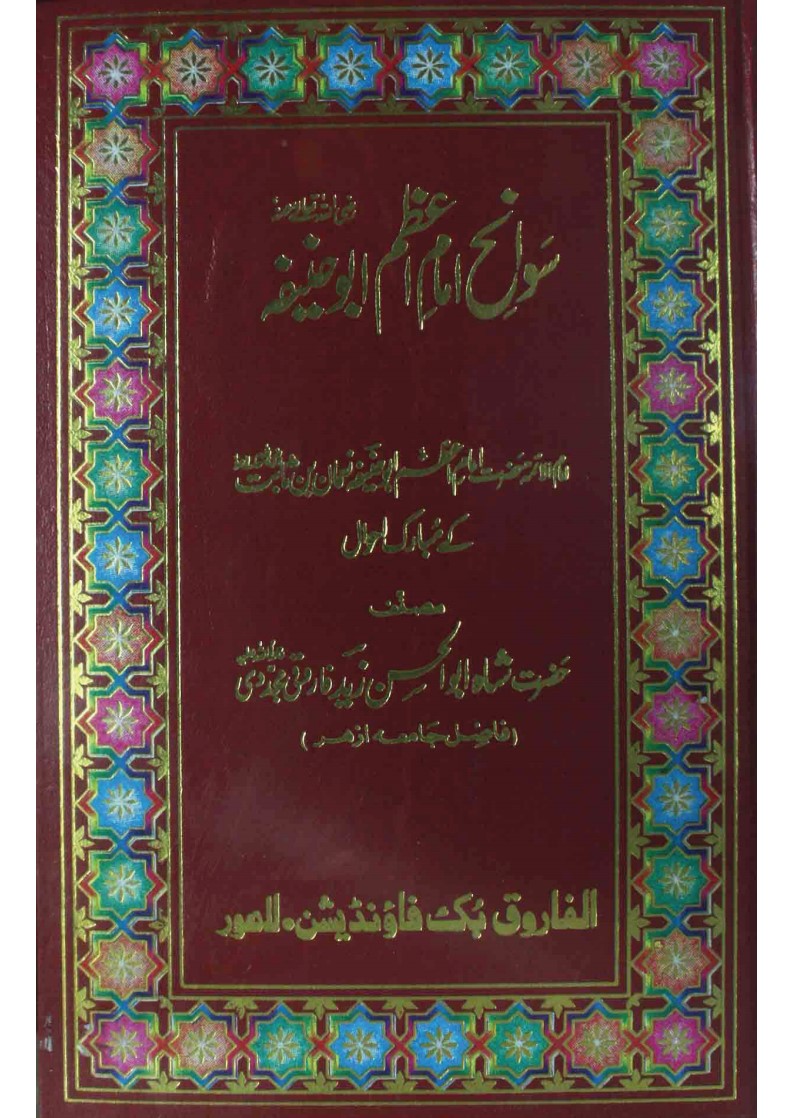 سوانح امام اعظم ابو حنیفہ رضی اللہ تعالیٰ عنہ
امام الائمہ حضرت امام اعظم ابو حنیفہ نعمان بن ثابت
کے مُبارک احوال
مصنف
حضرت شاہ ابو الحسن زید فاروقی مجددی رحمۃ اللہ علیہ
(فاضل جامعہ ازھر)
الفاروق بُک فاؤنڈیشن۔ لاھور